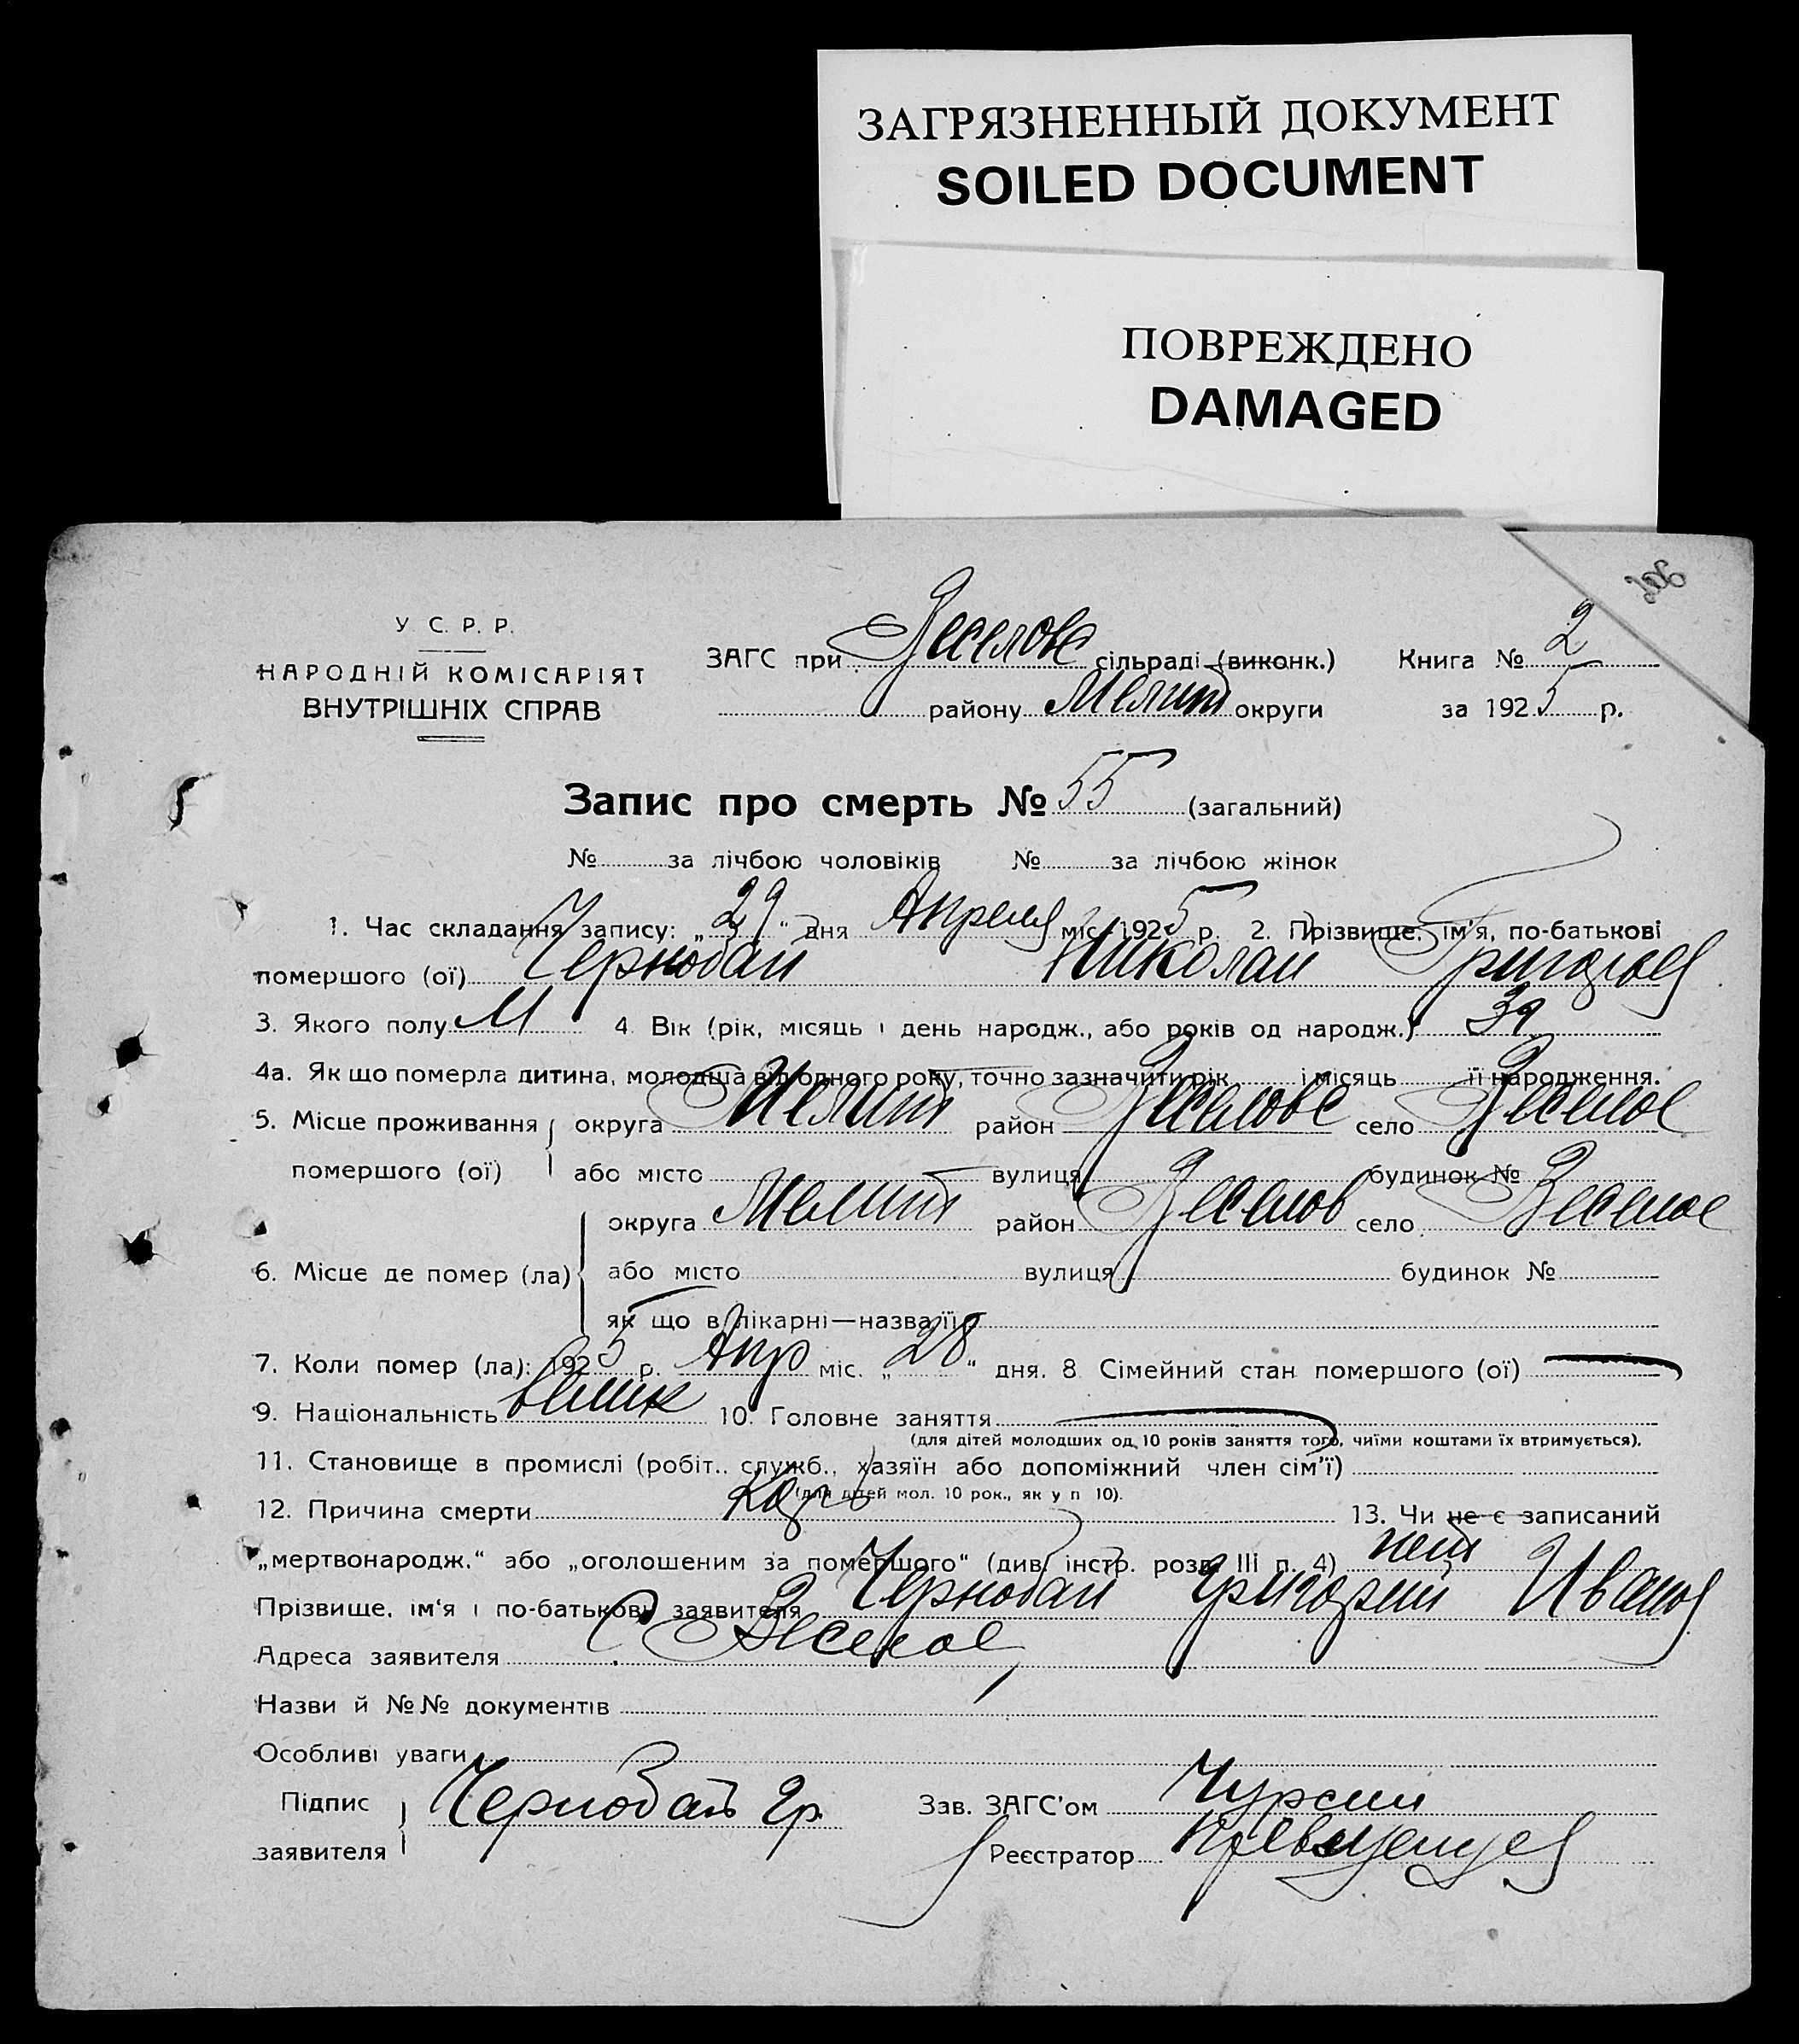 ЗАГРЯЗНЕННЫЙ ДОКУМЕНТ
SOILED DOCUMENT
ПОВРЕЖДЕНО
DAMAGED
У. С. Р. Р.
НАРОДНІЙ КОМІСАРІЯТ
ВНУТРІШНІХ СПРАВ
ЗАГС при Веселовс сільраді (виконк.)
району Мелит округи
Книга № 2
за 1925 р.
Запис про смерть № 55 (загальний)
№ за лічбою чоловіків № за лічбою жінок
1. Час складання запису: „29“ дня Апреля міс. 1925 р. 2. Прізвище, ім'я, по-батькові
помершого (ої) Чернобай Николай Григорьев
3. Якого полу М 4. Вік (рік, місяць і день народж., або років од народж.)
4а. Як що померла дитина, молодша від одного року, точно зазначити рік і місяць її народження.
5. Місце проживання округа Мелит район Веселовс село Веселое
помершого (ої) або місто вулиця будинок №
округа Мелит район Веселов село Веселое
6. Місце де помер (ла) або місто вулиця будинок №
як що в лікарні—назва її
7. Коли помер (ла): 1925 р. Апр міс. „28“ дня. 8 Сімейний стан помершого (ої)
9. Національність 10. Головне заняття
(для дітей молодших од 10 років заняття того, чиїми коштами їх втримується).
11. Становище в промислі (робіт., служб., хазяїн або допоміжний член сім'ї)
(для дітей мол. 10 рок., як у п 10).
12. Причина смерти Корь 13. Чи не є записаний
„мертвонародж.“ або „оголошеним за помершого“ (див. інстр. розд. III п. 4) нет
Прізвище, ім'я і по-батькові заявителя Чернобай Григорий Иванов
Адреса заявителя С Веселое
Назви й №№ документів
Особливі уваги
Підпис заявителя Чернобай Гр.
Зав. ЗАГС'ом Чурсин
Реєстратор